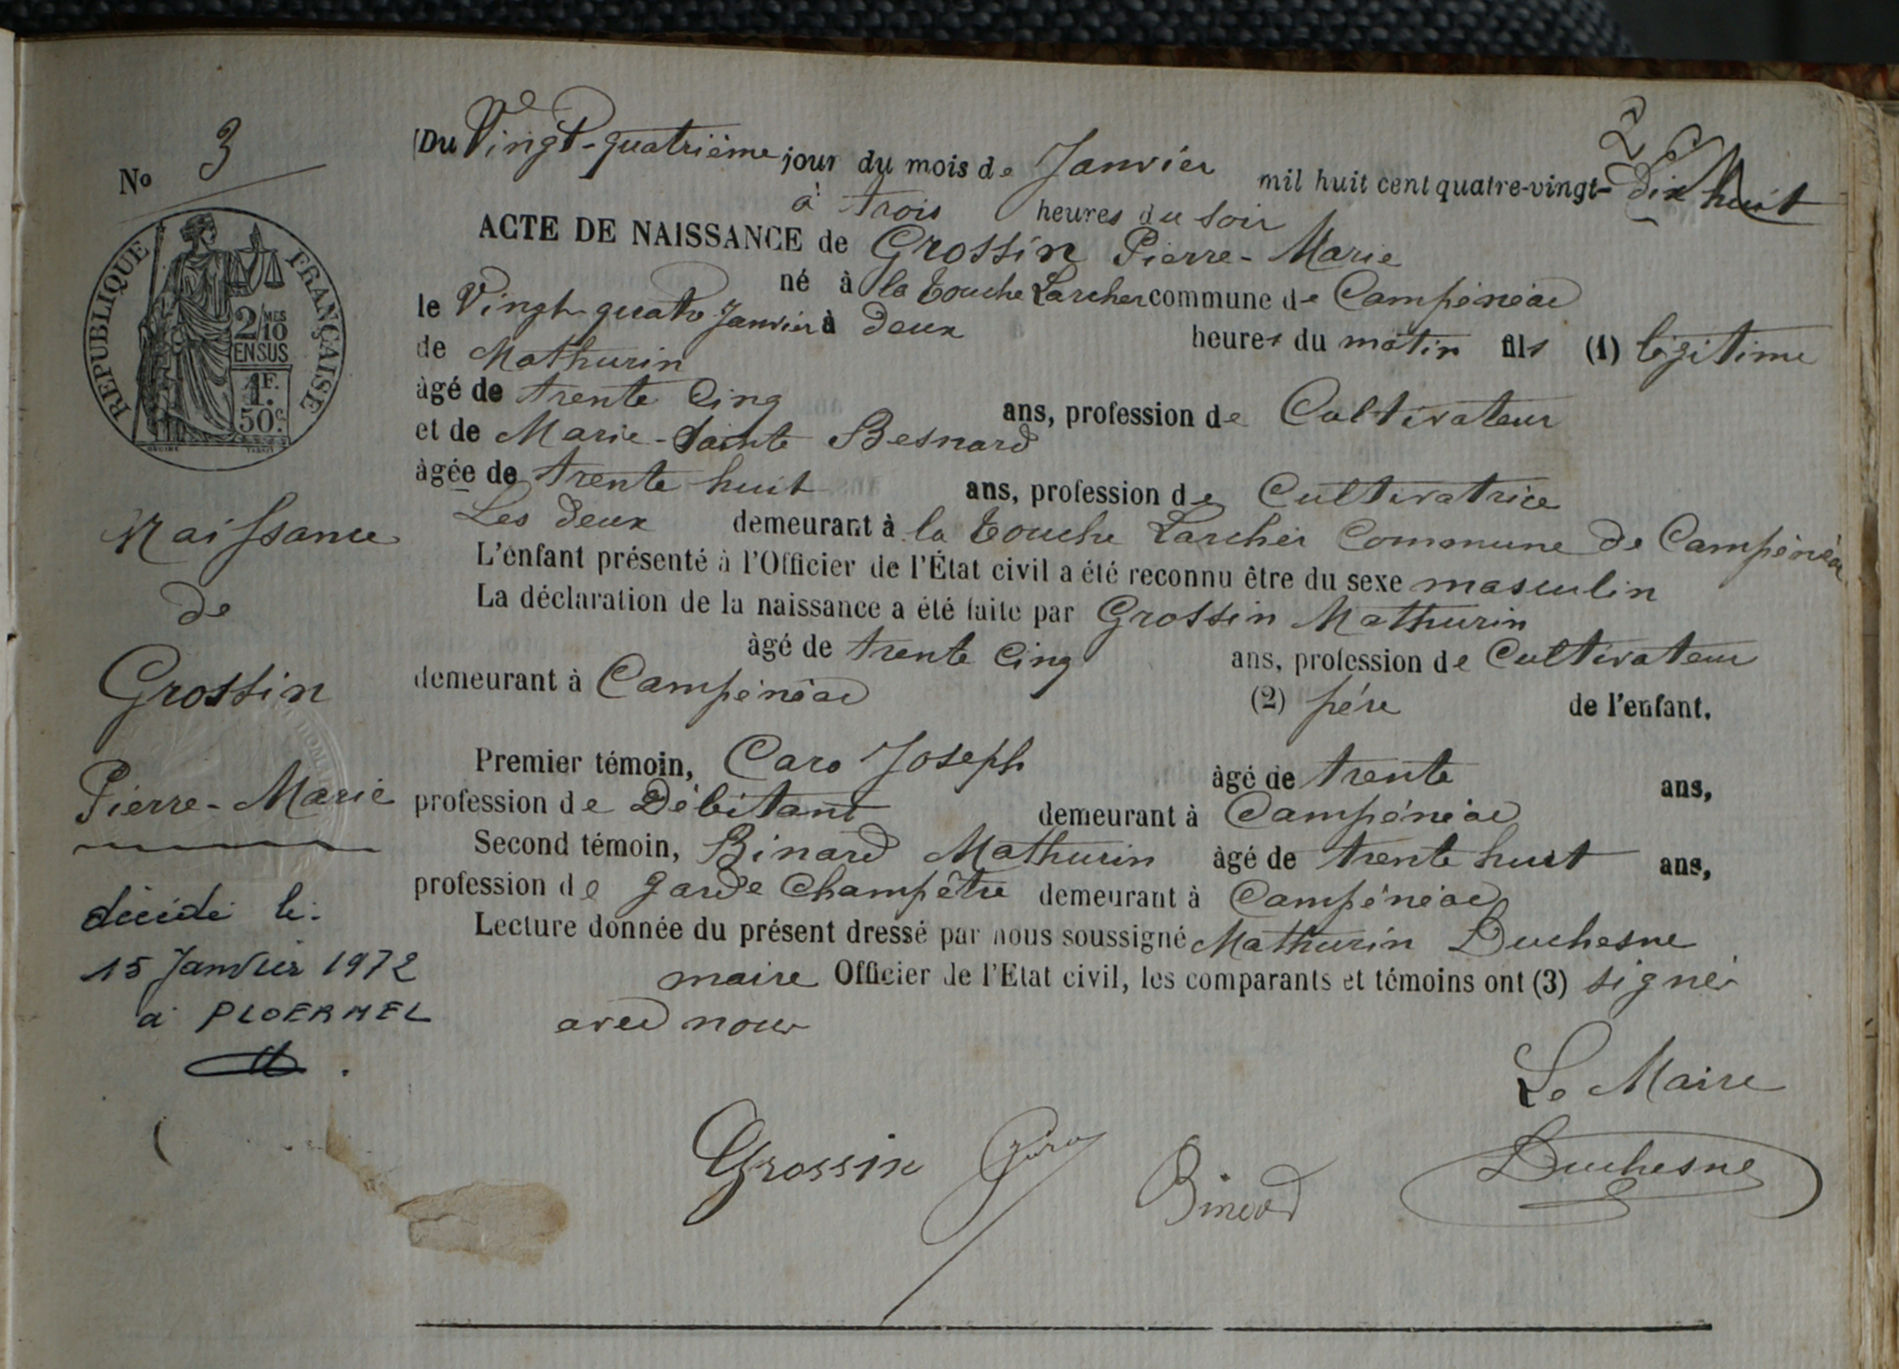 No 3
Du Vingt-quatrième jour du mois de Janvier mil huit cent quatre-vingt-dix huit
à trois heures du soir
ACTE DE NAISSANCE de Grossin Pierre-Marie
né à la Touche Larcher commune de Campénéac
le Vingt quatre Janvier à deux heures du matin fils (1) légitime
de Mathurin
âgé de trente Cinq ans, profession de Cultivateur
et de Marie-Sainte Besnard
âgée de trente huit ans, profession de Cultivatrice
Les deux demeurant à la Touche Larcher Commune de Campénéac
L'enfant présenté à l'Officier de l'État civil a été reconnu être du sexe masculin
La déclaration de la naissance a été faite par Grossin Mathurin
âgé de trente Cinq ans, profession de Cultivateur
demeurant à Campénéac (2) père de l'enfant.
Premier témoin, Caro Joseph âgé de trente ans,
profession de Débitant demeurant à Campénéac
Second témoin, Binard Mathurin âgé de trente huit ans,
profession de garde Champêtre demeurant à Campénéac
Lecture donnée du présent dressé par nous soussigné Mathurin Duchesne
maire Officier de l'Etat civil, les comparants et témoins ont (3) signé
avec nous
Le Maire
Grossin
Binard
Duchesne
RÉPUBLIQUE FRANÇAISE
2/10
MES
EN SUS
1F.
50c
Naissance
de
Grossin
Pierre-Marie
décédé le:
15 Janvier 1972
à PLOERMEL